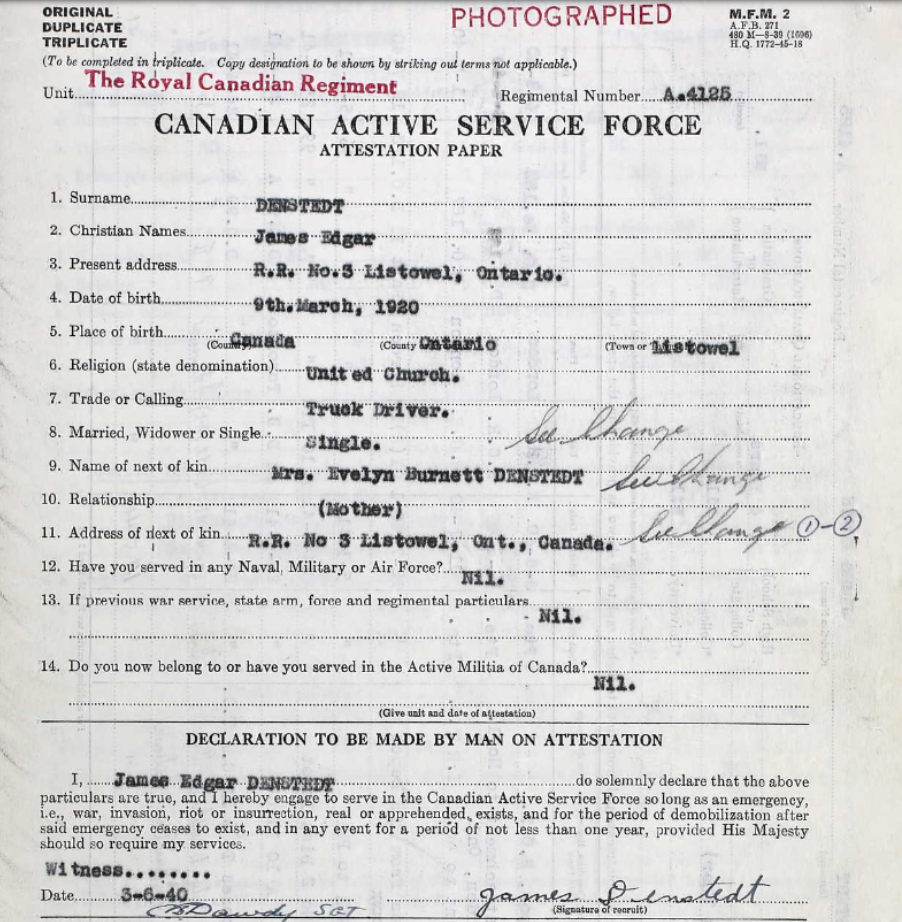 ORIGINAL
DUPLICATE
TRIPLICATE
PHOTOGRAPHED
M.F.M. 2
A.F.B. 271
480 M—8-39 (1696)
H.Q. 1772-45-18
(To be completed in triplicate. Copy designation to be shown by striking out terms not applicable.)
Unit The Royal Canadian Regiment Regimental Number A.4125
CANADIAN ACTIVE SERVICE FORCE
ATTESTATION PAPER
1. Surname DENSTEDT
2. Christian Names James Edgar
3. Present address R.R. No.3 Listowel, Ontario.
4. Date of birth 9th.March, 1920
5. Place of birth Canada Ontario Listowel
(County (Town or
6. Religion (state denomination) United Church.
7. Trade or Calling Truck Driver.
8. Married, Widower or Single Single. See Change
9. Name of next of kin Mrs. Evelyn Burnett DENSTEDT See Change
10. Relationship (Mother)
11. Address of next of kin R.R. No 3 Listowel, Ont., Canada. See Change ①-②
12. Have you served in any Naval, Military or Air Force? Nil.
13. If previous war service, state arm, force and regimental particulars Nil.
14. Do you now belong to or have you served in the Active Militia of Canada? Nil.
(Give unit and date of attestation)
DECLARATION TO BE MADE BY MAN ON ATTESTATION
I, James Edgar DENSTEDT do solemnly declare that the above
particulars are true, and I hereby engage to serve in the Canadian Active Service Force so long as an emergency,
i.e., war, invasion, riot or insurrection, real or apprehended, exists, and for the period of demobilization after
said emergency ceases to exist, and in any event for a period of not less than one year, provided His Majesty
should so require my services.
Witness........
Date 3-6-40 James Denstedt
Dawdy SGT (Signature of recruit)